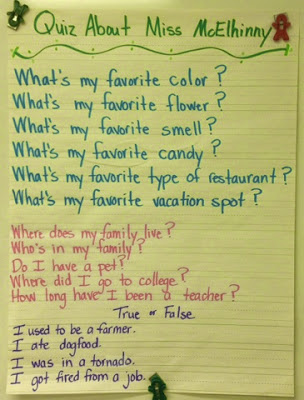 Quiz About Miss McElhinny
What's my favorite color?
What's my favorite flower?
What's my favorite smell?
What's my favorite candy?
What's my favorite type of restaurant?
What's my favorite vacation spot?
Where does my family live?
Who's in my family?
Do I have a pet?
Where did I go to college?
How long have I been a teacher?
True or False
I used to be a farmer.
I ate dogfood.
I was in a tornado.
I got fired from a job.